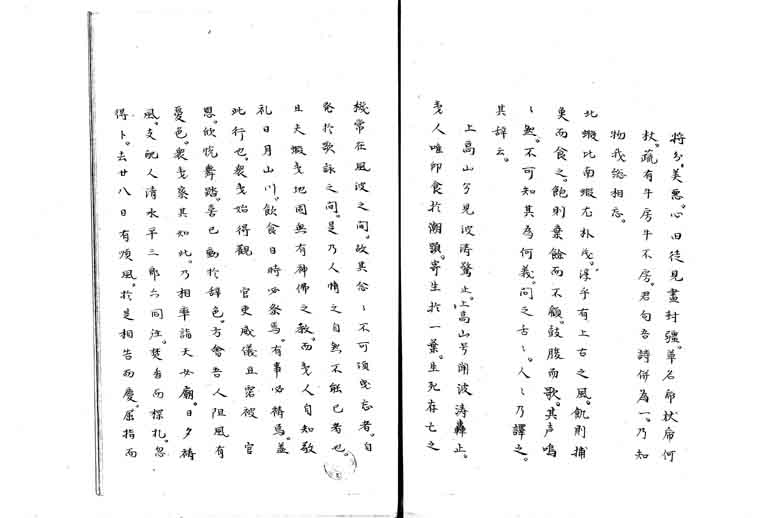 将分美悪。心田徒見畫封疆。草名荷杖帝何
杖。蔬有牛房牛不房。君句吾詩併為一。乃知
物我俗相忘。
北蝦比南蝦尤朴茂。渾乎有上古之風。飢則捕
奥而食之。飽則棄餘而不顧。鼓腹而歌。其声嗚
〻然。不可知其為何義。問之舌〻。人〻乃譯之。
其辞云。
上高山兮見波涛驚止。上高山兮聞波涛轟止。
夷人唯仰食於潮頭。寄生於一葉。生死存亡之
機常在風波之間。故其俗〻不可須曳忘者。自
発於歌詠之間。是乃人情之自然不能已者也。
且夫蝦夷地固無有神佛之教。而夷人自知敬
礼日月山川。飲食日時必祭焉。有事必祷焉。蓋
此行也。衆夷始得觀 官吏威儀且霑被 官
恩。欣恱舞踏。喜已動於辞色。方會吾人阻風有
憂色。衆夷察其如此。乃相率詣天女廟。日夕祷
風。支配人清水平三郎亦同往。焚香而探札。忽
得卜。去廿八日有順風。於是相告而慶。屈指而